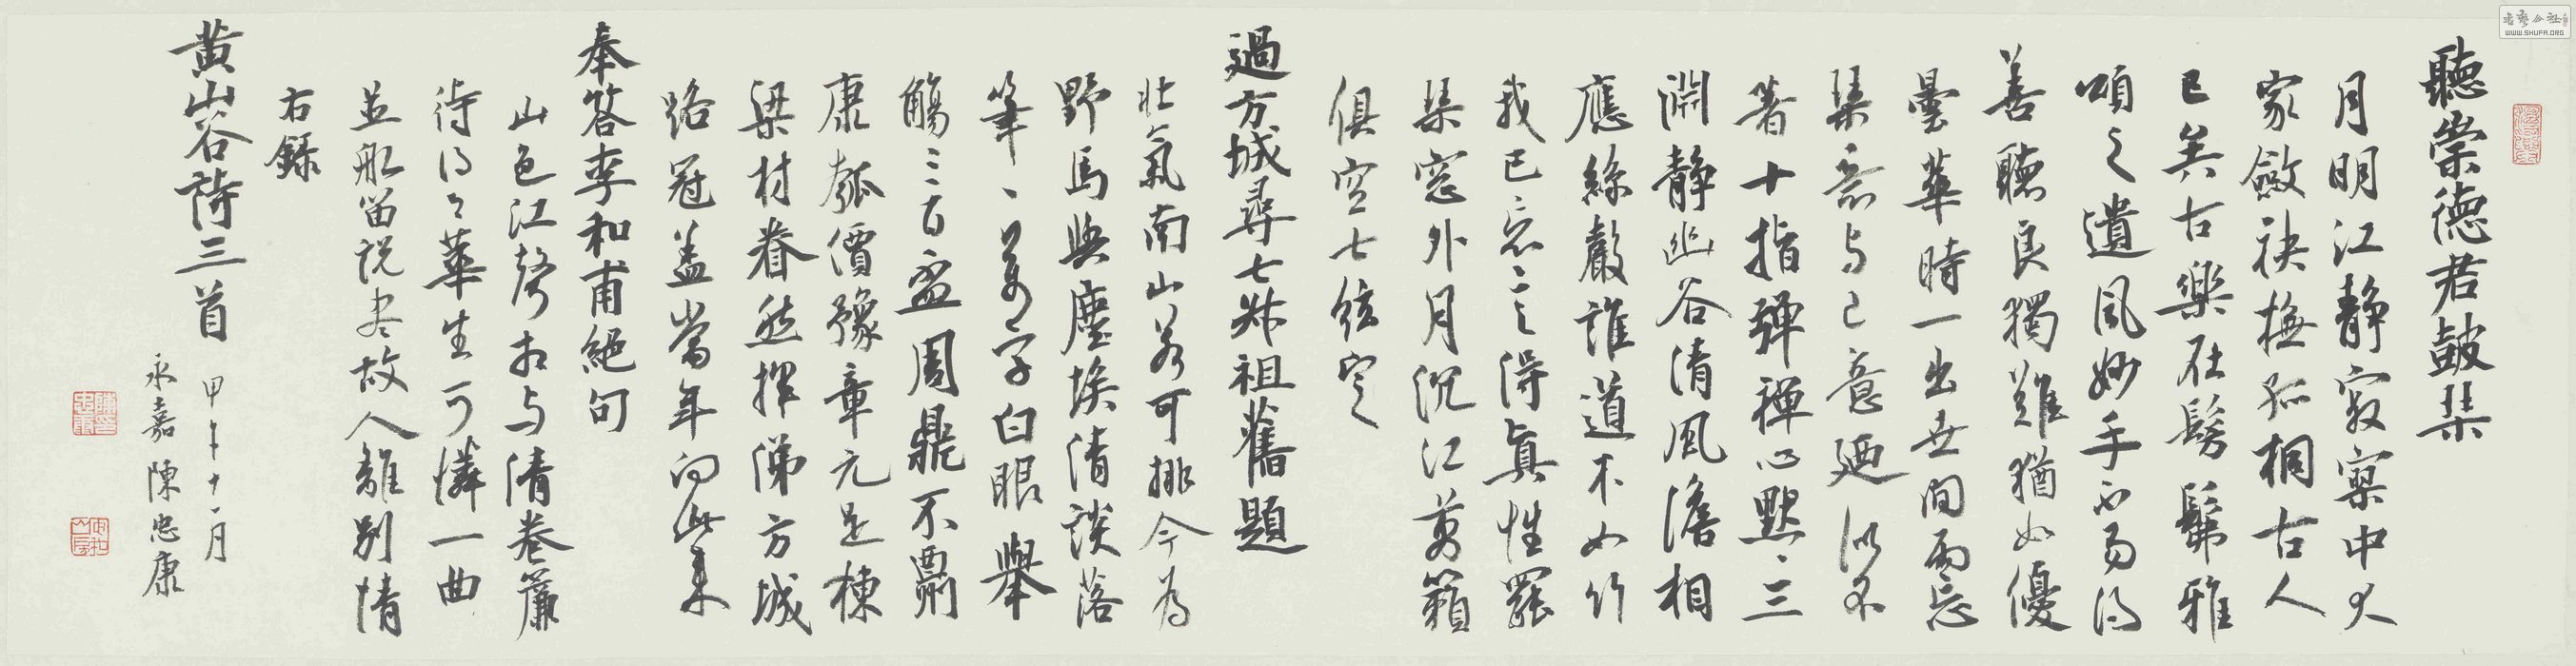 聽崇德君鼓琹
月明江靜寂寞中大
家斂袂撫孤桐古人
已矣古樂在髣髴雅
頌之遺風妙手不易得
善聽良獨難猶如優
曇華時一出世間兩忘
琹意与己意廼似不
著十指彈禪心默、三
淵靜幽谷清風澹相
應絲聲誰道不如竹
我已忘言得真性罷
琹窓外月沉江萬籟
俱空七絃定
過方城尋七叔祖舊題
壯氣南山若可排今為
野馬與塵埃清談落
筆一萬字白眼舉
觴三百盃周鼎不酬
康瓠價豫章元是棟
梁材眷然揮涕方城
路冠盖當年向此來
奉答李和甫絕句
山色江聲相与清卷簾
待得月華生可憐一曲
並船笛說盡故人離別情
右錄
黃山谷詩三首
甲午十一月
永嘉陳忠康
WWW.SHUFA.ORG